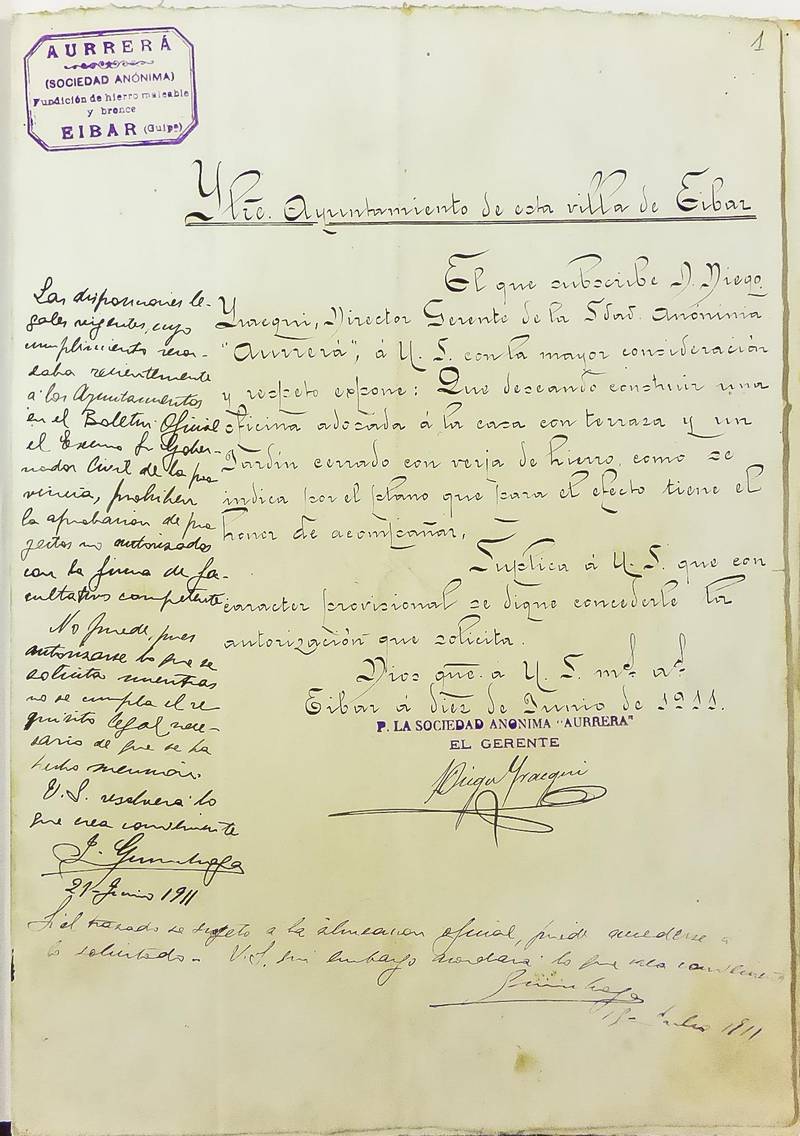 AURRERÁ
(SOCIEDAD ANÓNIMA)
Fundición de hierro maleable
y bronce
EIBAR (Guipª)
1
Yltre. Ayuntamiento de esta villa de Eibar
El que subscribe D. Diego
Yraegui, Director Gerente de la Sdad. Anónima
"Aurrerá", á U. S. con la mayor consideración
y respeto expone: Que deseando construir una
oficina adosada á la casa con terraza y un
Jardín cerrado con verja de hierro, como se
indica por el plano que para el efecto tiene el
honor de acompañar,
Suplica á U. S. que con
caracter provisional se digne concederle la
autorización que solicita.
Dios gue. á U. S. ms. as.
Eibar á diez de Junio de 1911.
P. LA SOCIEDAD ANONIMA "AURRERA"
EL GERENTE
Diego Yraegui
Las disposiciones le-
gales vigentes, cuyo
cumplimiento recor-
daba recientemente
a los Ayuntamientos
en el Boletin Oficial
el Excmo Sr Gober-
nador Civil de la pro
vincia, prohiben
la aprobacion de pro
yectos no autorizados
con la firma de fa-
cultativo competente
No puede, pues
autorizarse lo que se
solicita mientras
no se cumpla el re-
quisito legal nece-
sario de que se ha
hecho mención.
V.S. resolverá lo
que crea conveniente
21-Junio 1911
Si el trazado se sujeta a la alineacion oficial, puede accederse a
lo solicitado - V.S. sin embargo acordará lo que crea conveniente
19- Julio 1911